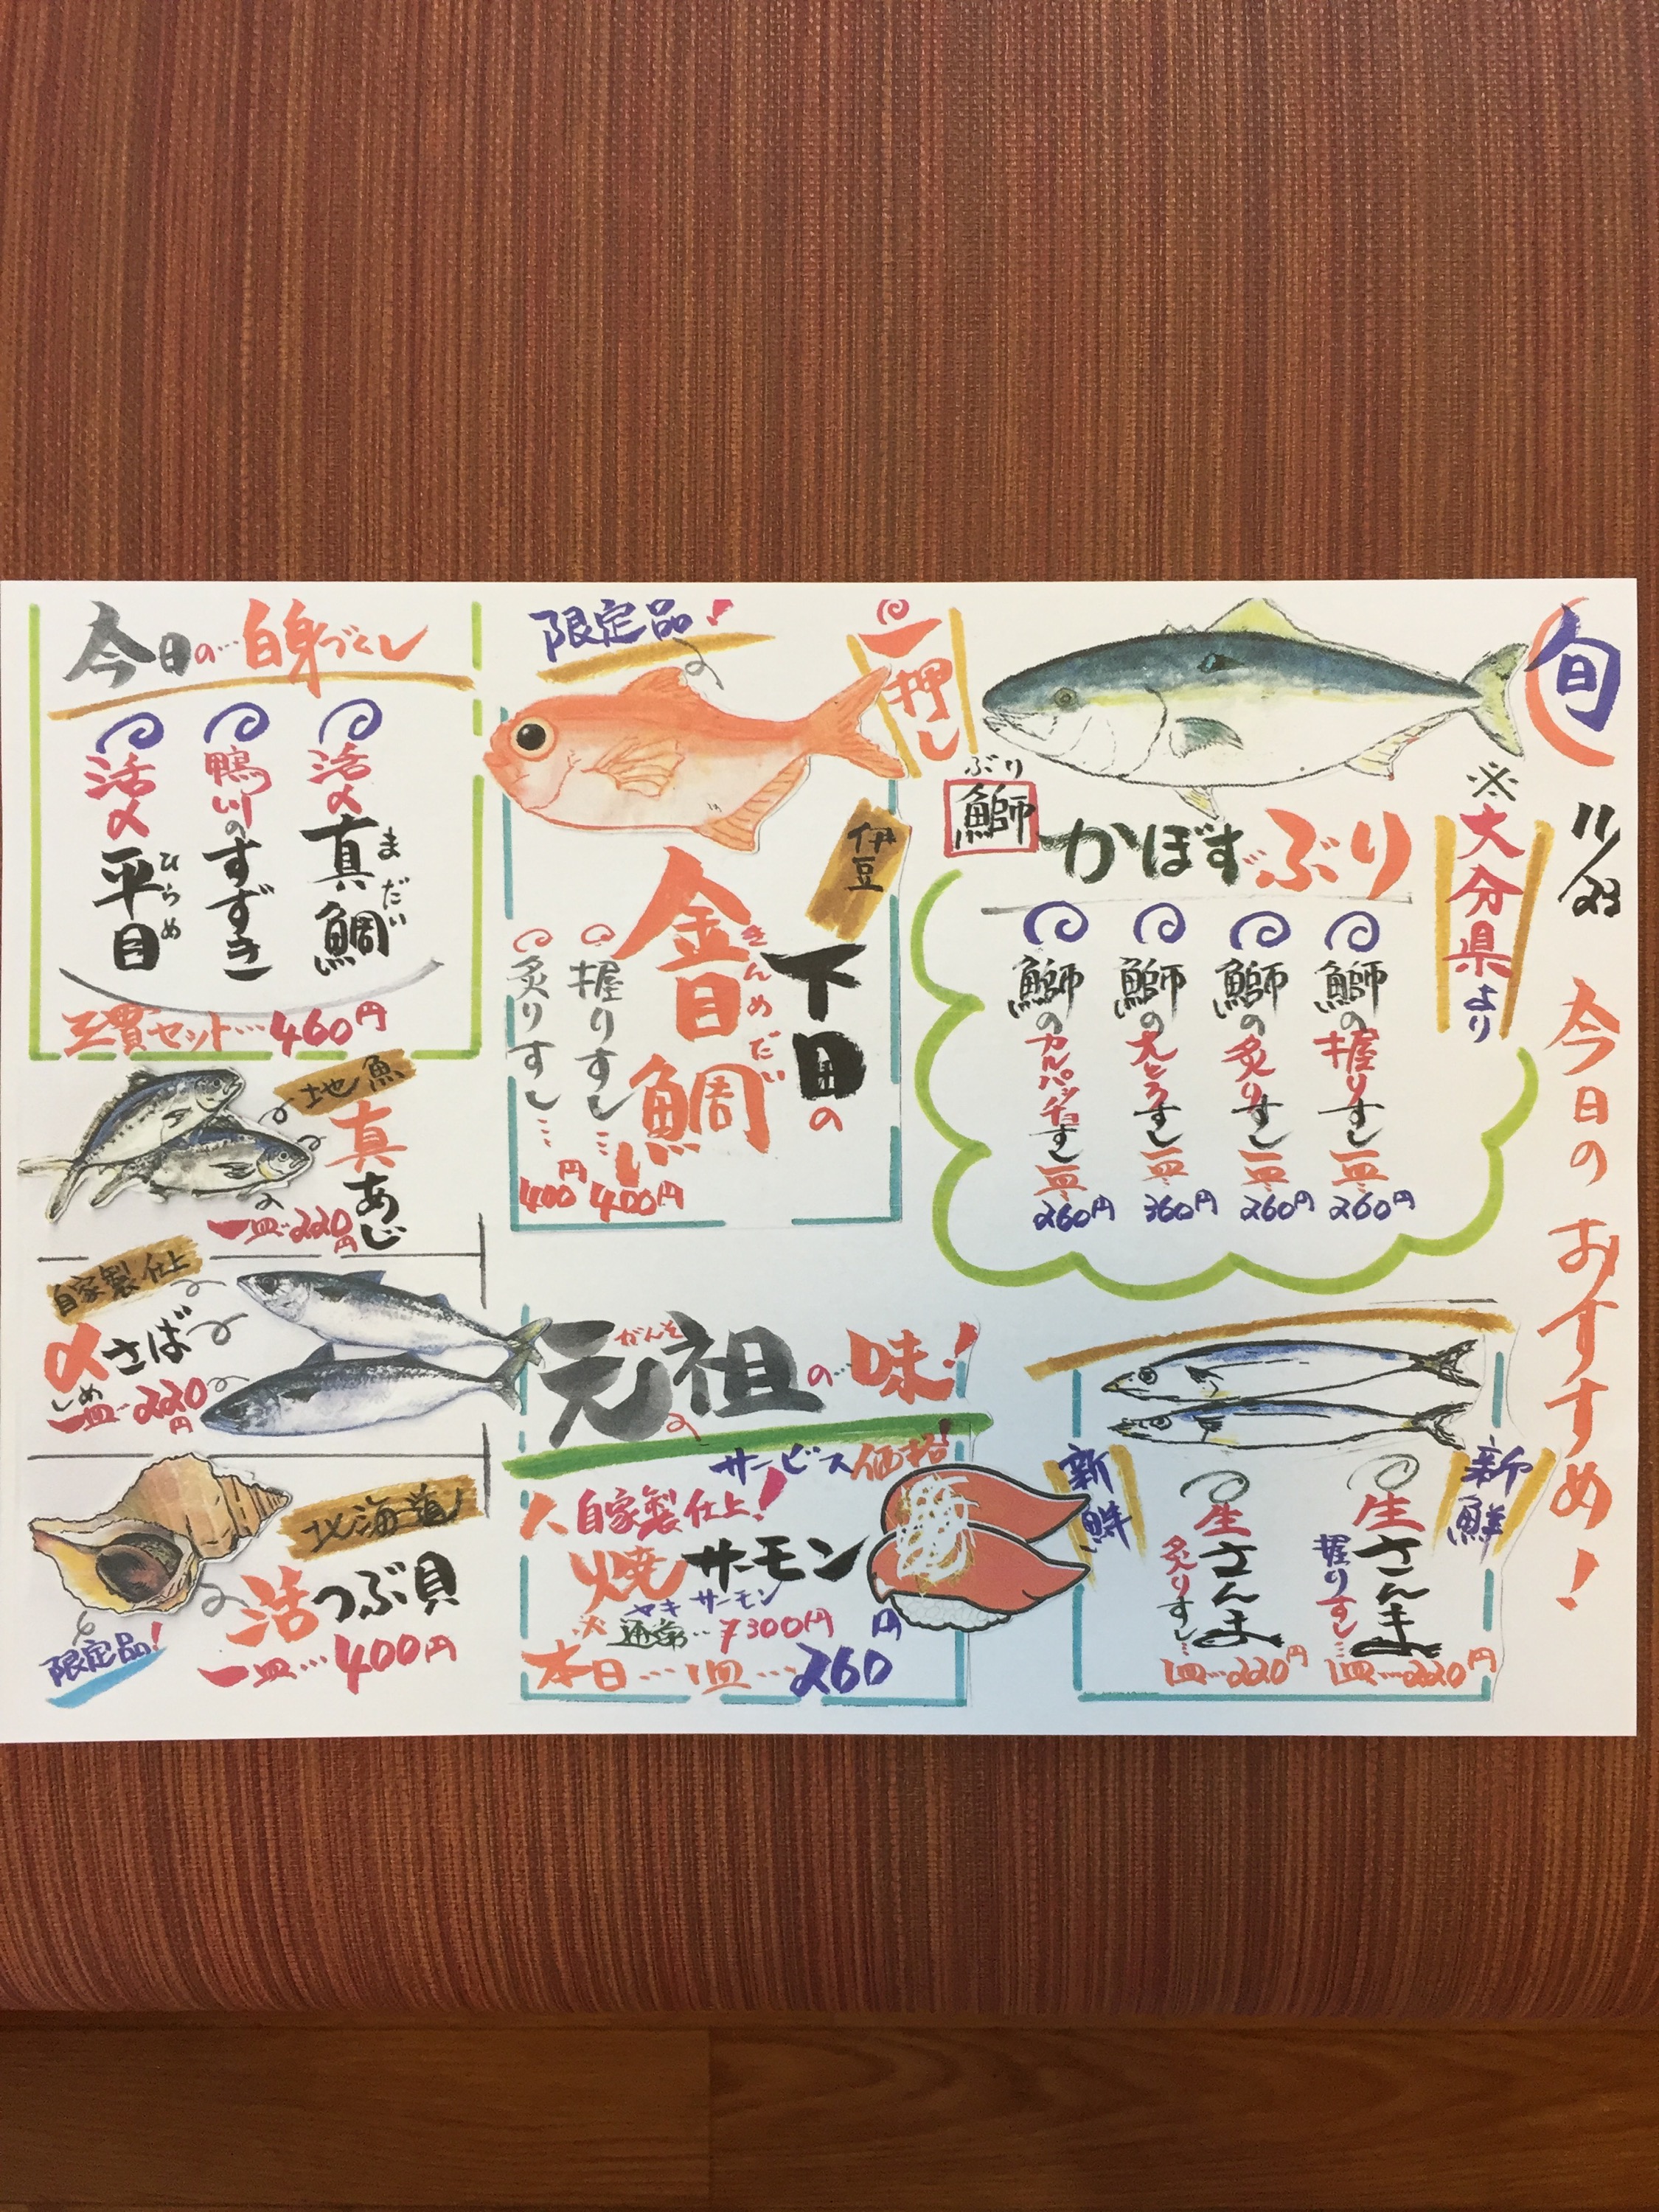 旬
11/23
今日のおすすめ!
※大分県より
ぶり
鰤
かぼすぶり
鰤の握りすし一皿…260円
鰤の炙りすし一皿…260円
鰤の大とろすし一皿…360円
鰤のカルパッチョすし一皿…260円
新鮮
生さんま
握りすし…
一皿…220円
生さんま
炙りすし…
一皿…220円
新鮮
一押し
限定品!
伊豆
下田の
金目鯛
きんめだい
握りすし…400円
炙りすし…400円
元祖の味!
がんそ
サービス価格!
自家製仕上!
焼サーモン
ヤキサーモン
※通常…300円
本日…一皿…260円
今日の…白身づくし
活〆真鯛
まだい
鴨川のすずき
活〆平目
ひらめ
三貫セット…460円
地魚
真あじ
一皿…220円
自家製仕上
〆さば
しめ
一皿…220円
北海道
活つぶ貝
限定品!
一皿…400円